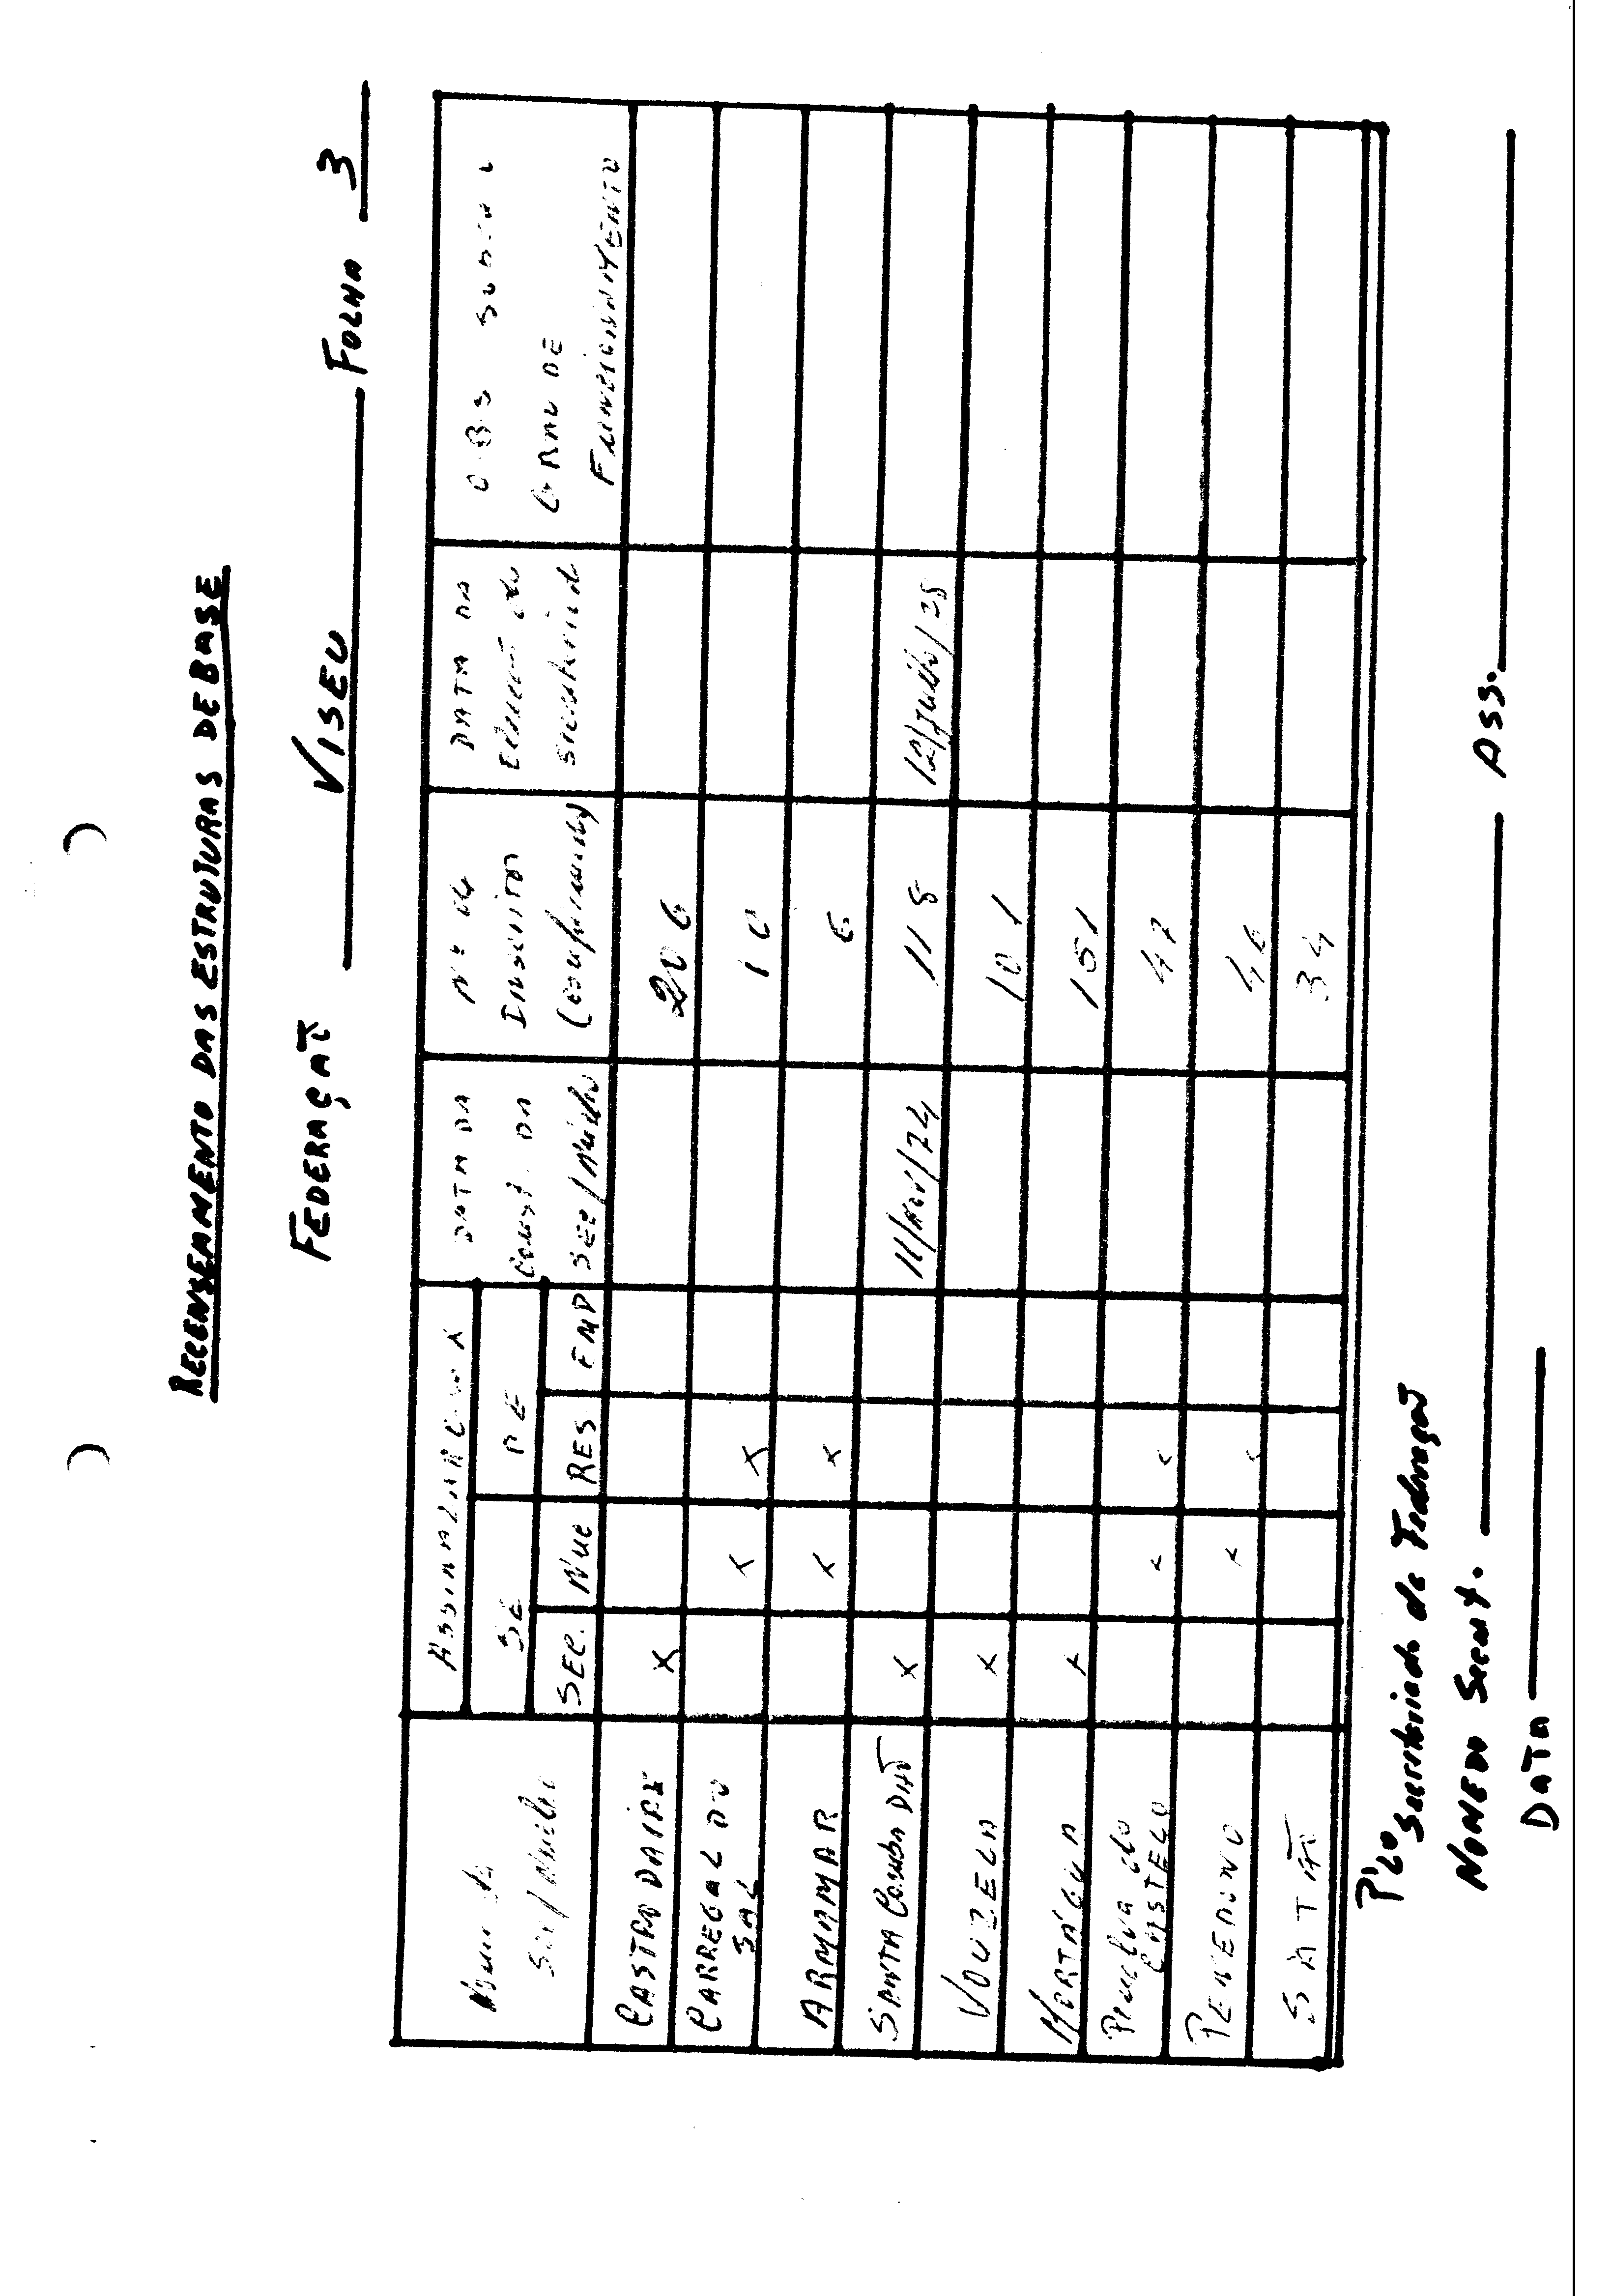 RECENSEAMENTO DAS ESTRUTURAS DE BASE
FEDERAÇÃO VISEU FOLHA 3
ASSINALAR COM X
SE PE
SEC. Nuc RES EMP
Nome da Sec/Núcleo
DATA DA Const. DA SEC/Núcleo
Nº de Inscritos (confirmados)
DATA DA Eleição do Secretariado
OBS SOBRE O GRAU DE FUNCIONAMENTO
CASTRO DAIRE X 206
CARREGAL DO SAL X X 10
ARMAMAR X X 6
SANTA Comba DÃO X 11/Nov/74 118 12/Julho/75
VOUZELA X 101
MORTÁGUA X 151
Penalva do CASTELO X X 47
PENEDONO X X 46
SÁTÃO 34
P'LO Secretariado da Federação
NOME DO Secret. ASS.
DATA